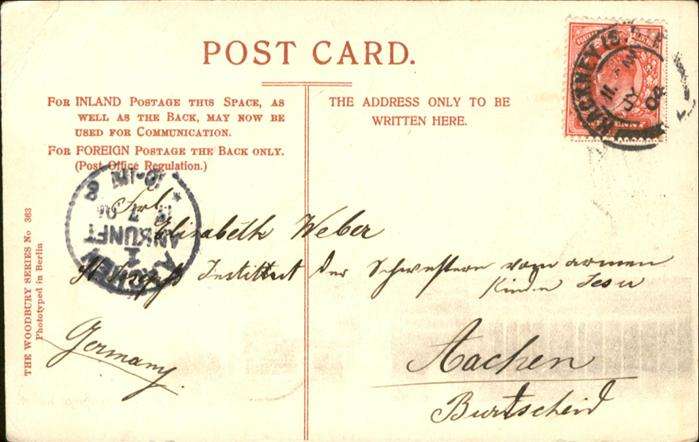 POST CARD.
FOR INLAND POSTAGE THIS SPACE, AS
WELL AS THE BACK, MAY NOW BE
USED FOR COMMUNICATION.
FOR FOREIGN POSTAGE THE BACK ONLY.
(Post Office Regulation.)
THE ADDRESS ONLY TO BE
WRITTEN HERE.
HACKNEY
AACHEN
1
ANKUNFT
Frl.
Elisabeth Weber
St Josephs Institut der Schwestern vom armen
Kinde Jesu
Germany.
Aachen
Burtscheid
THE WOODBURY SERIES No 363
Phototyped in Berlin